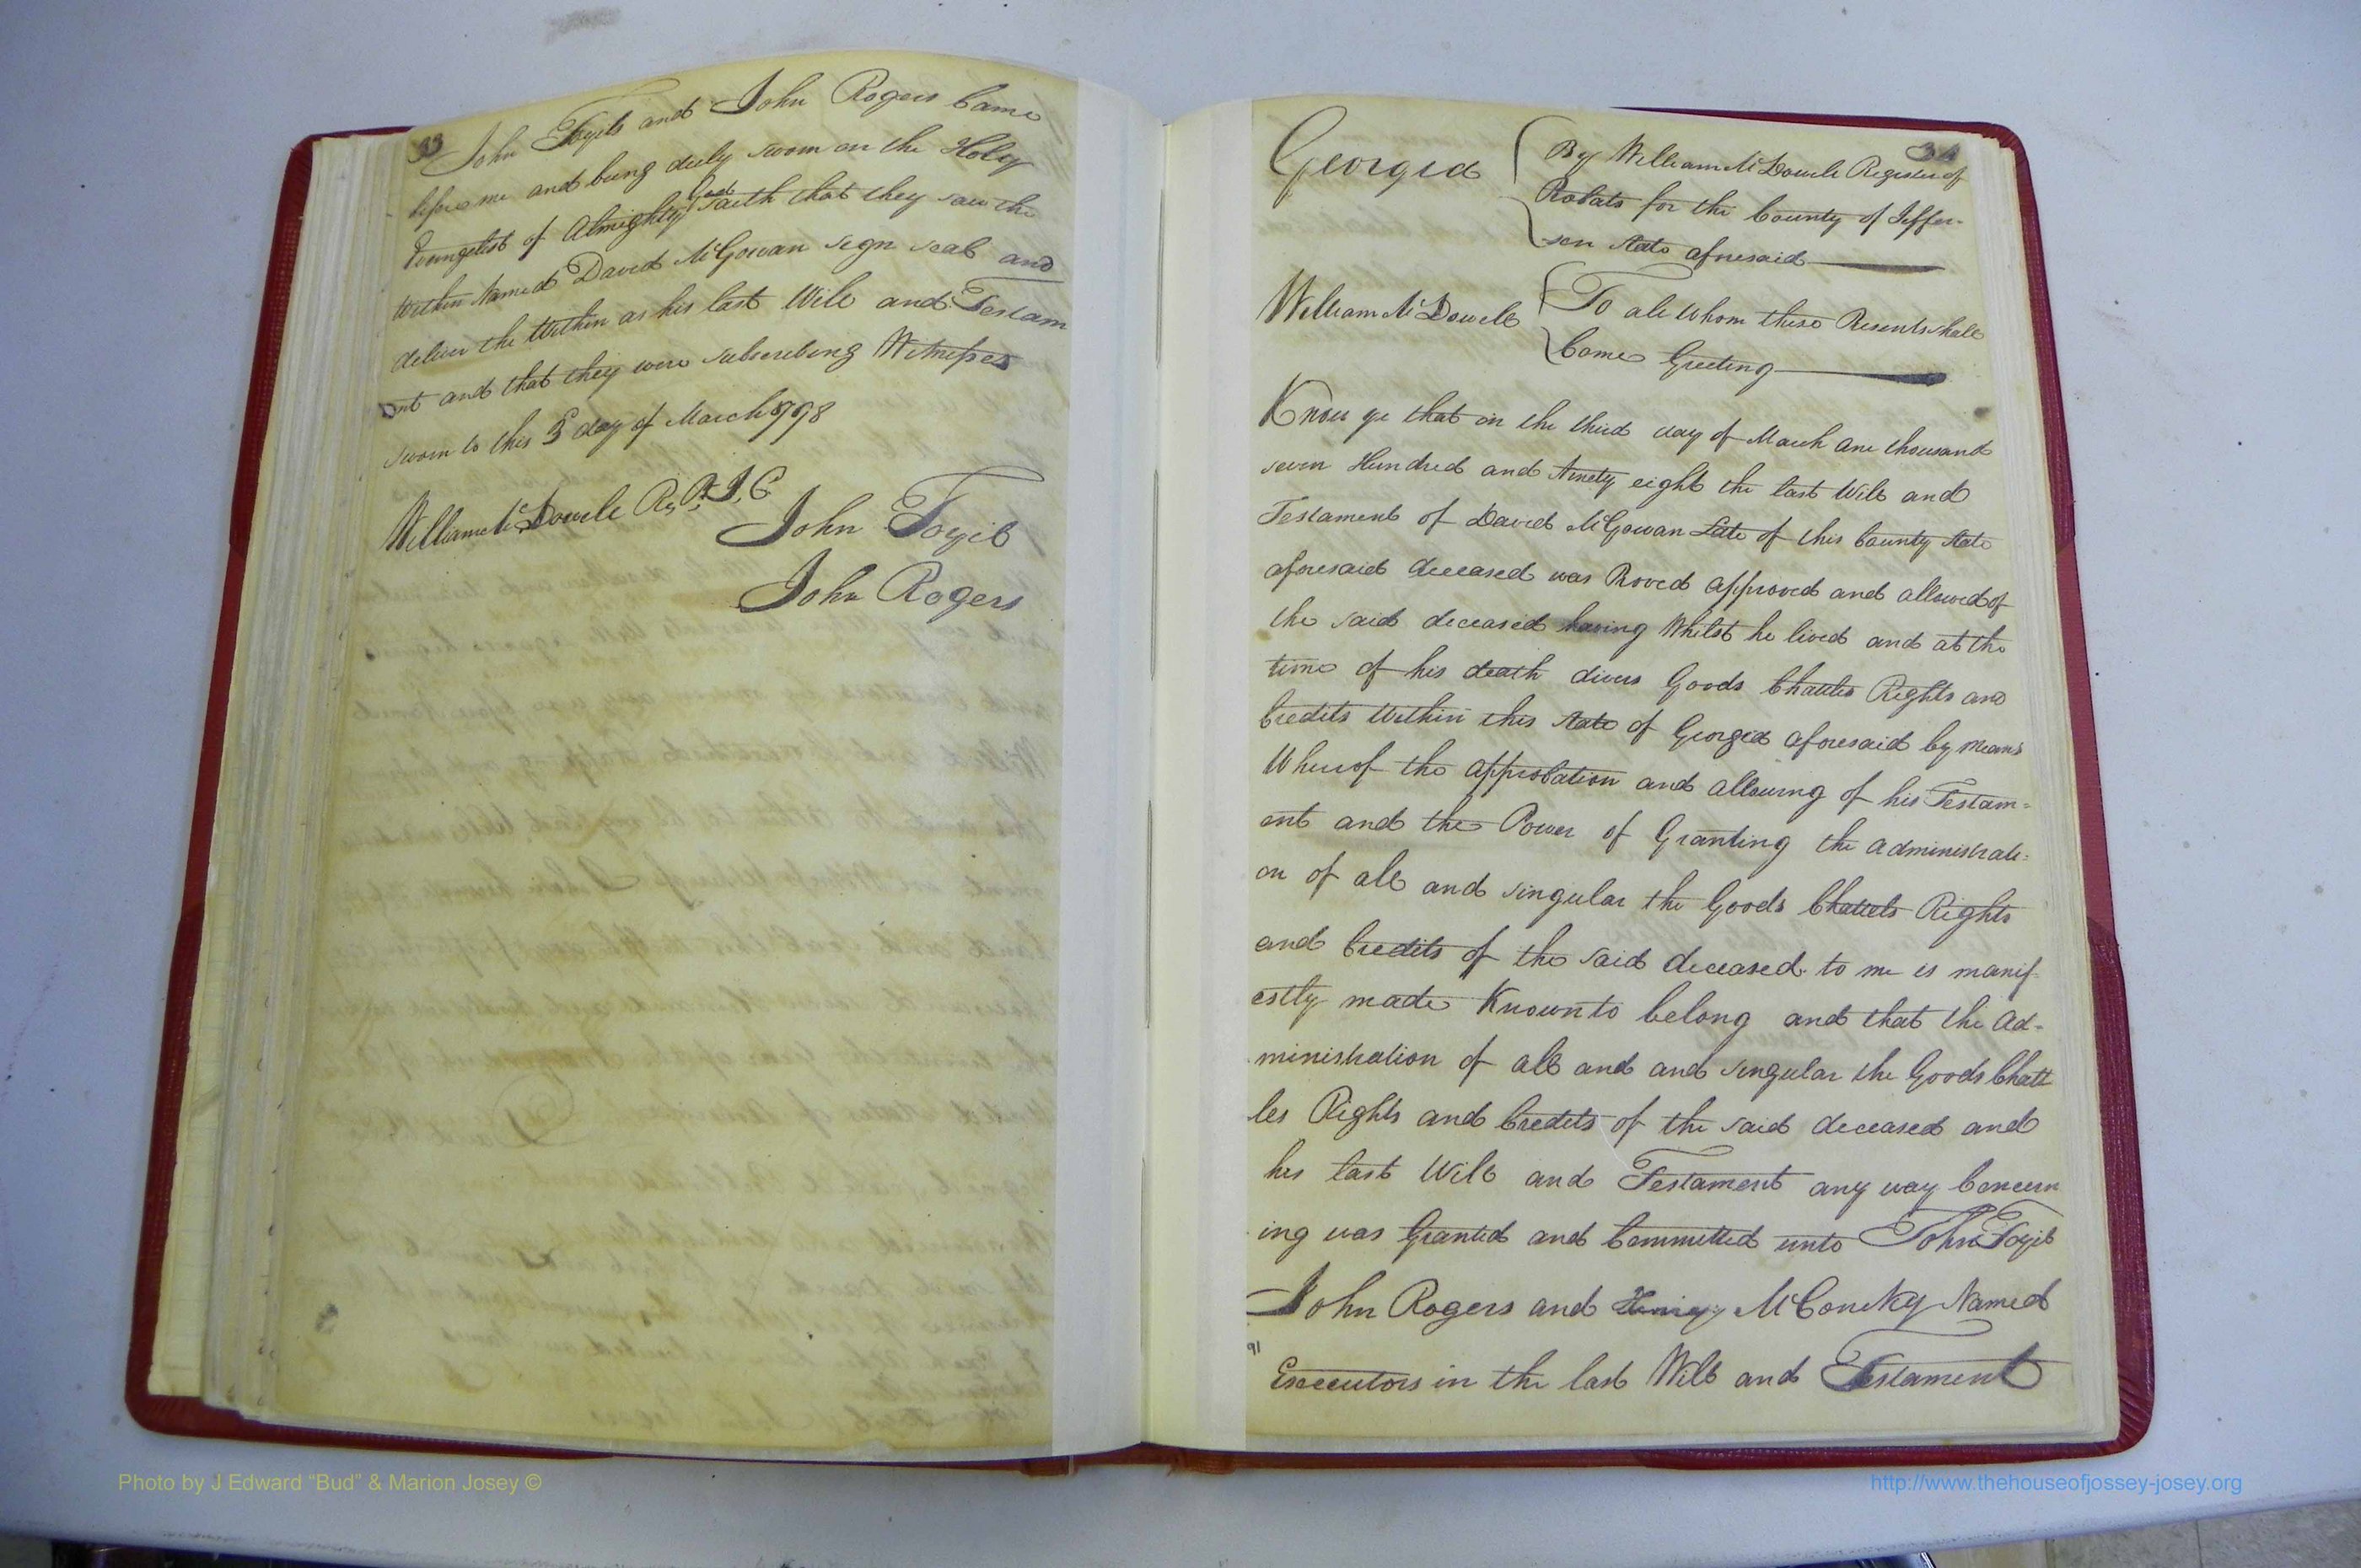 33
John Fogils and John Rogers Came
before me and being duly sworn on the Holy
Evangelist of Almighty God Saith that they saw the
Within Named David McGowan sign seal and
deliver the Within as his last Will and Testam
ent and that they were subscribing Witnesses
sworn to this 3 day of March 1798
William McDowell R, P, J, C
John Fogil
John Rogers
34
Georgia
By William McDowell Register of
Probats for the County of Jeffer-
son State aforesaid
William McDowell
To all Whom these Presents shall
Come Greeting
Know ye that on the third day of March one thousand
seven Hundred and Ninety eight the last Will and
Testament of David McGowan Late of this County State
aforesaid deceased was Proved approved and allowed of
the said deceased having Whilst he lived and at the
time of his death divers Goods Chattles Rights and
Credits Within this State of Georgia aforesaid by means
Whereof the approbation and allowing of his Testam=
ent and the Power of Granting the administrati=
on of all and singular the Goods Chattels Rights
and Credits of the said deceased to me is manif-
estly made Known to belong and that the Ad-
ministration of all and and singular the Goods Chatt
les Rights and Credits of the said deceased and
his last Will and Testament any way Concern
ing was Granted and Committed unto John Fogil
John Rogers and McConky Named
91
Executors in the last Will and Testament
Photo by J Edward “Bud” & Marion Josey ©
http://www.thehouseofjossey-josey.org